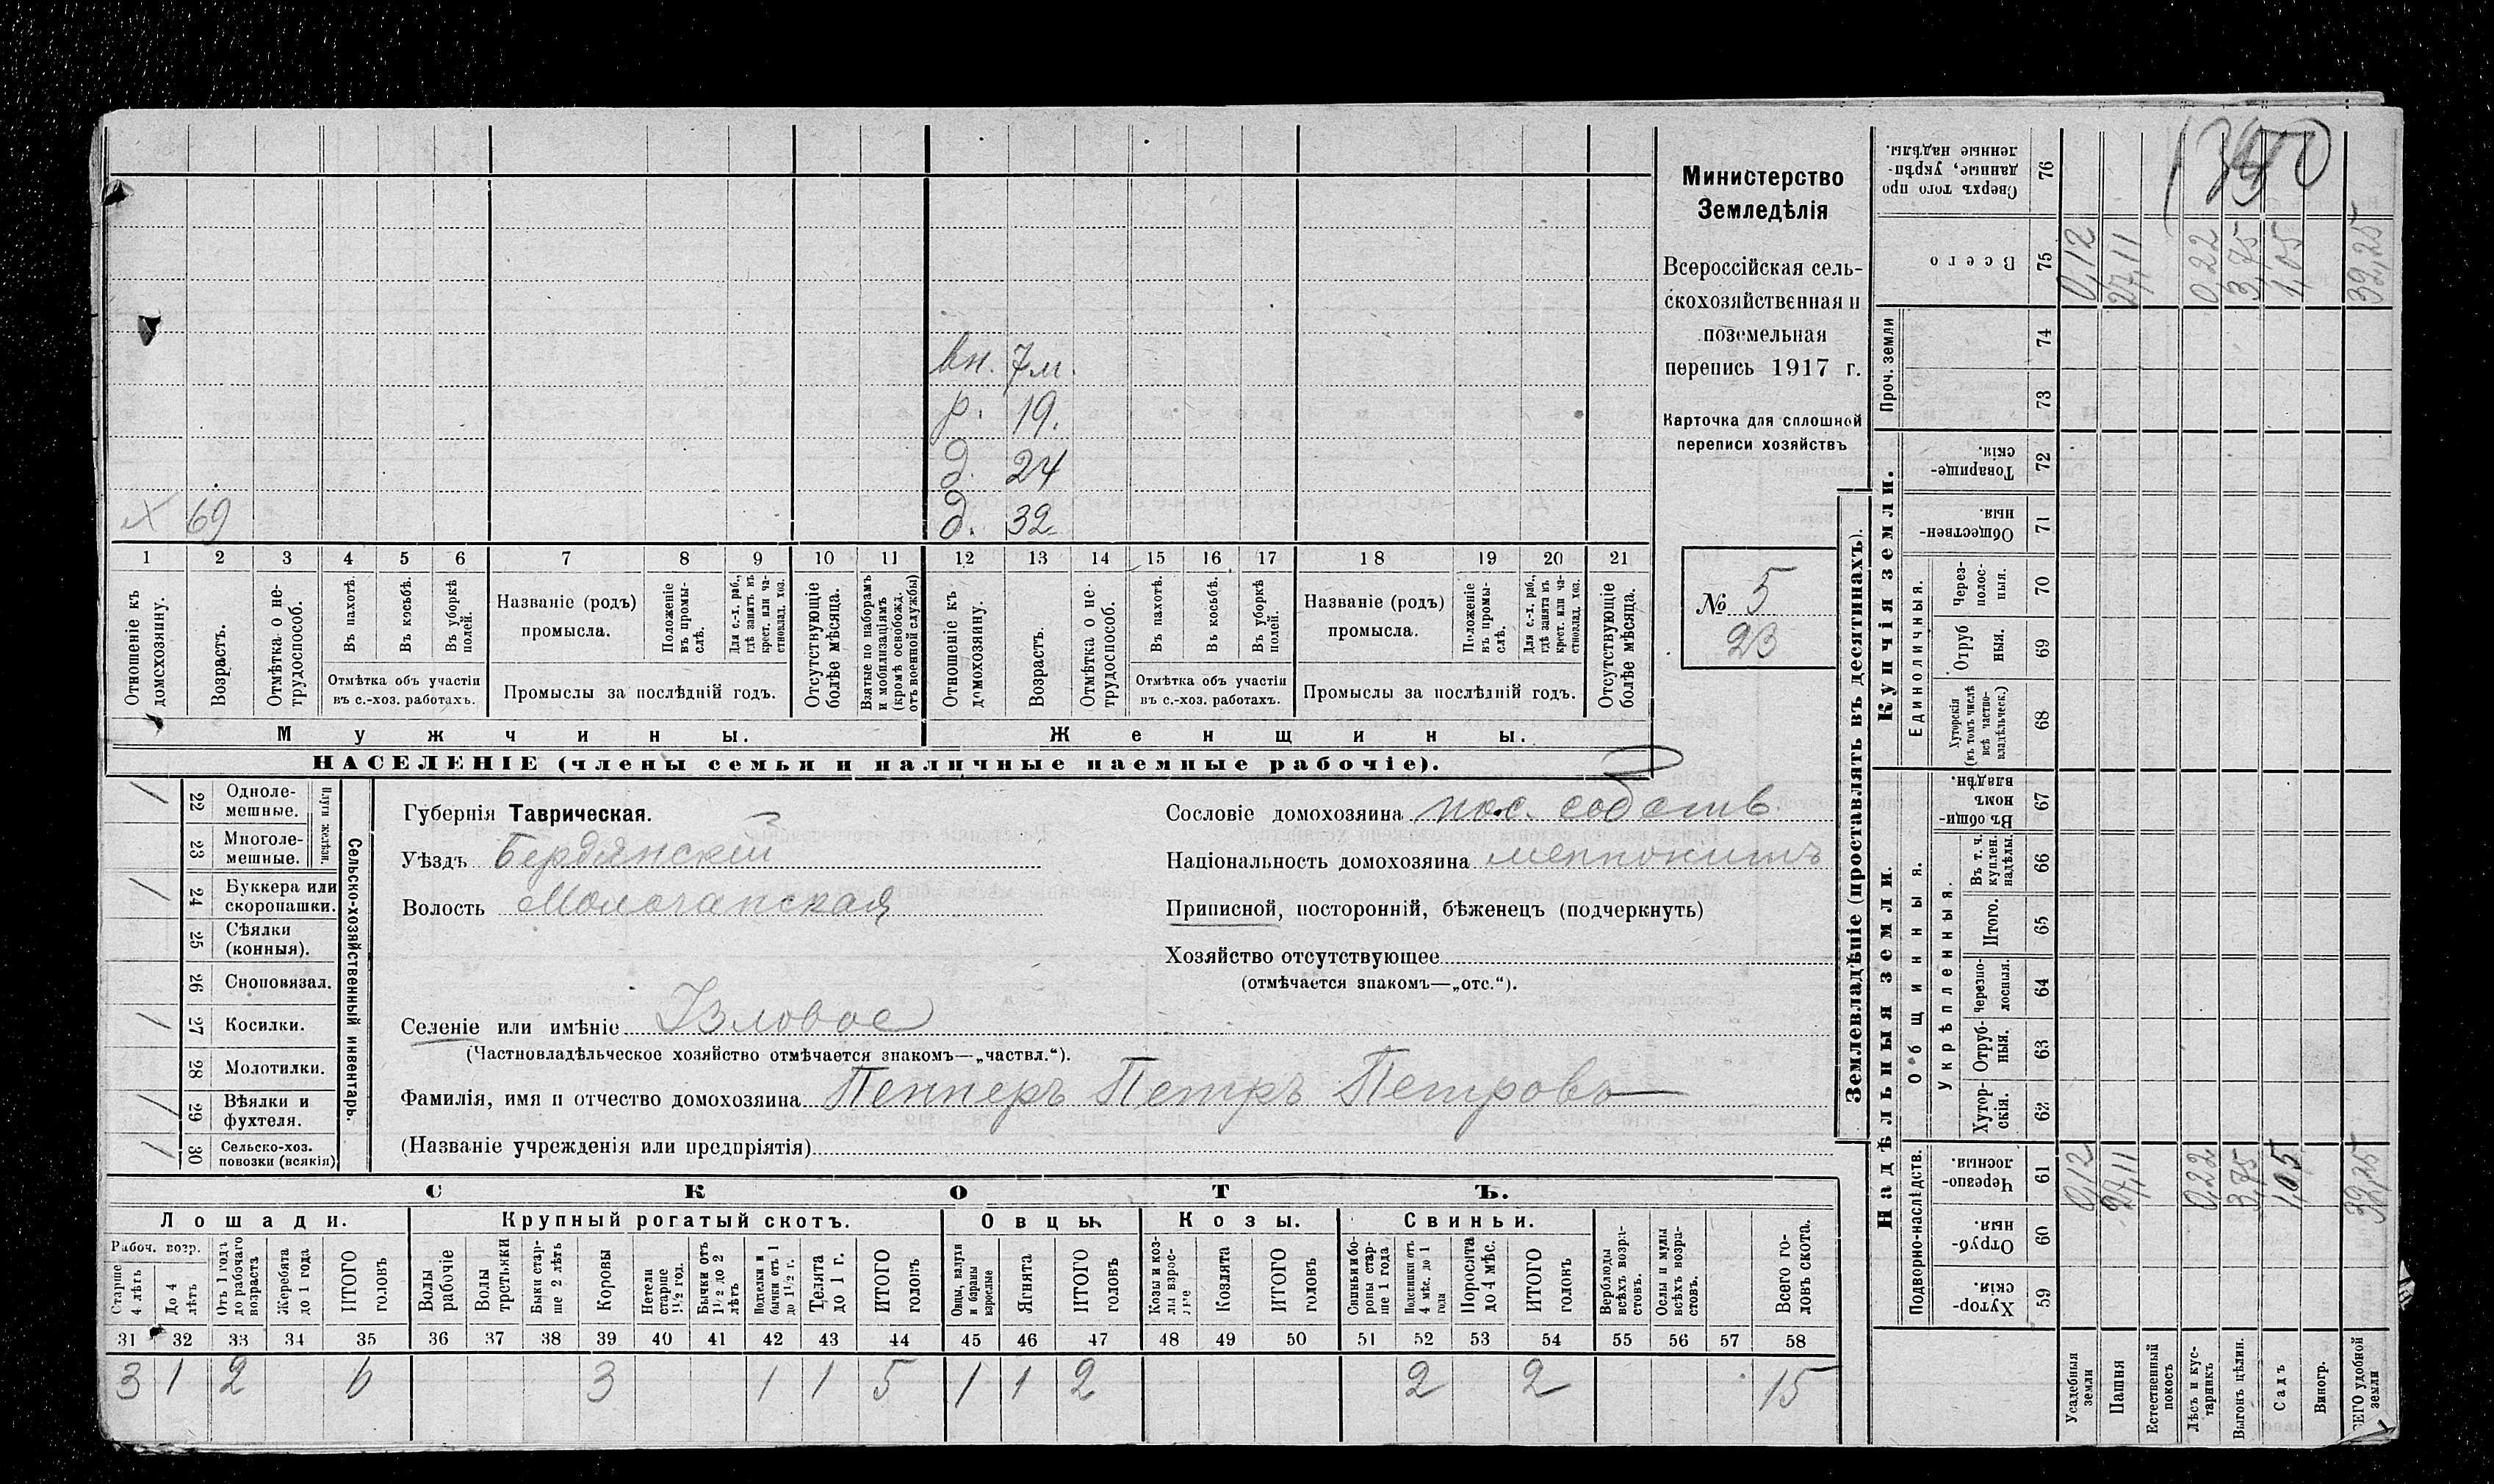 Министерство
Земледѣлія
Всероссійская сель-
скохозяйственная и
поземельная
перепись 1917 г.
Карточка для сплошной
переписи хозяйствъ
№ 5
23
вн. 7 м.
р. 19.
д. 24
х 69
д. 32
1 2 3 4 5 6 7 8 9 10 11 12 13 14 15 16 17 18 19 20 21
Отношеніе къ домохозяину.
Возрастъ.
Отмѣтка о не-трудоспособ.
Въ пахотѣ.
Въ косьбѣ.
Въ уборкѣ полей.
Отмѣтка объ участіи
въ с.-хоз. работахъ.
Названіе (родъ)
промысла.
Положеніе въ промы-слѣ.
Для с.-х. раб., гдѣ занятъ въ крест. или ча-стновлад. хоз.
Промыслы за послѣдній годъ.
Отсутствующіе болѣе мѣсяца.
Взятые по наборамъ и мобилизаціямъ (кромѣ освобожд. отъ военной службы)
Отношеніе къ домохозяину.
Возрастъ.
Отмѣтка о не-трудоспособ.
Въ пахотѣ.
Въ косьбѣ.
Въ уборкѣ полей.
Отмѣтка объ участіи
въ с.-хоз. работахъ.
Названіе (родъ)
промысла.
Положеніе въ промы-слѣ.
Для с.-х. раб., гдѣ занята въ крест. или ча-стновлад. хоз.
Промыслы за послѣдній годъ.
Отсутствующіе болѣе мѣсяца.
Мужчины.
Женщины.
НАСЕЛЕНІЕ (члены семьи и наличные наемные рабочіе).
Сельско-хозяйственный инвентарь.
Плуги желѣзн.
/ 22 Одноле-мешные.
23 Многоле-мешные.
/ 24 Буккера или скоропашки.
25 Сѣялки (конныя).
26 Сноповязал.
/ 27 Косилки.
28 Молотилки.
/ 29 Вѣялки и фухтеля.
/ 30 Сельско-хоз. повозки (всякія)
Губернія Таврическая.
Уѣздъ Бердянскій
Волость Молочанская
Сословіе домохозяина пос. собств
Національность домохозяина меннонитъ
Приписной, посторонній, бѣженецъ (подчеркнуть)
Хозяйство отсутствующее
(отмѣчается знакомъ—„отс.“).
Селеніе или имѣніе
(Частновладѣльческое хозяйство отмѣчается знакомъ—„частвл.“).
Фамилія, имя и отчество домохозяина Пеннеръ Петръ Петровъ
(Названіе учрежденія или предпріятія)
СКОТЪ.
Лошади. Крупный рогатый скотъ. Овцы. Козы. Свиньи.
Рабоч. возр.
Старше 4 лѣтъ
До 4 лѣтъ
Отъ 1 года до рабочаго возраста
Жеребята до 1 года
ИТОГО головъ
Волы рабочіе
Волы третьяки
Быки стар-ше 2 лѣтъ
Коровы
Нетели старше 1½ год.
Бычки отъ 1½ до 2 лѣтъ
Подтелки и бычки отъ 1 до 1½ г.
Телята до 1 г.
ИТОГО головъ
Овцы, валухи и бараны взрослые
Ягнята
ИТОГО головъ
Козы и коз-лы взрос-лые
Козлята
ИТОГО головъ
Свиньи и бо-ровы стар-ше 1 года
Подсвинки отъ 4 мѣс. до 1 года
Поросята до 4 мѣс.
ИТОГО головъ
Верблюды всѣхъ возра-стовъ.
Ослы и мулы всѣхъ возра-стовъ.
Всего го-ловъ скота.
31 32 33 34 35 36 37 38 39 40 41 42 43 44 45 46 47 48 49 50 51 52 53 54 55 56 57 58
3 1 2 6 3 1 1 5 1 1 2 2 2 15
Землевладѣніе (проставлять въ десятинахъ).
Надѣльныя земли.
Купчія земли.
Подворно-наслѣдств.
Общинныя.
Укрѣпленныя.
Единоличныя.
Проч. земли
Сверхъ того про данные, укрѣп-ленные надѣлы. 76
Всего 75
74
73
Товарище-скія. 72
Обществен-ныя. 71
Через-полос-ныя. 70
Отруб ныя. 69
Хуторскія (въ томъ числѣ всѣ частно-владѣльческ.) 68
Въ общи-номъ владѣн. 67
Въ т. ч. куплен. надѣлы. 66
Итого. 65
Черезпо-лосныя. 64
Отруб-ныя. 63
Хутор-скія. 62
Черезпо-лосныя. 61
Отруб-ныя. 60
Хутор-скія. 59
0,12 27,11 0,22 3,75 1,05 32,25
0,12 27,11 0,22 3,75 1,05 32,25
Усадебныя земли
Пашня
Естественный покосъ
Лѣсъ и кус-тарникъ
Выгонъ цѣлин.
Садъ
Виногр.
ВСЕГО удобной земли